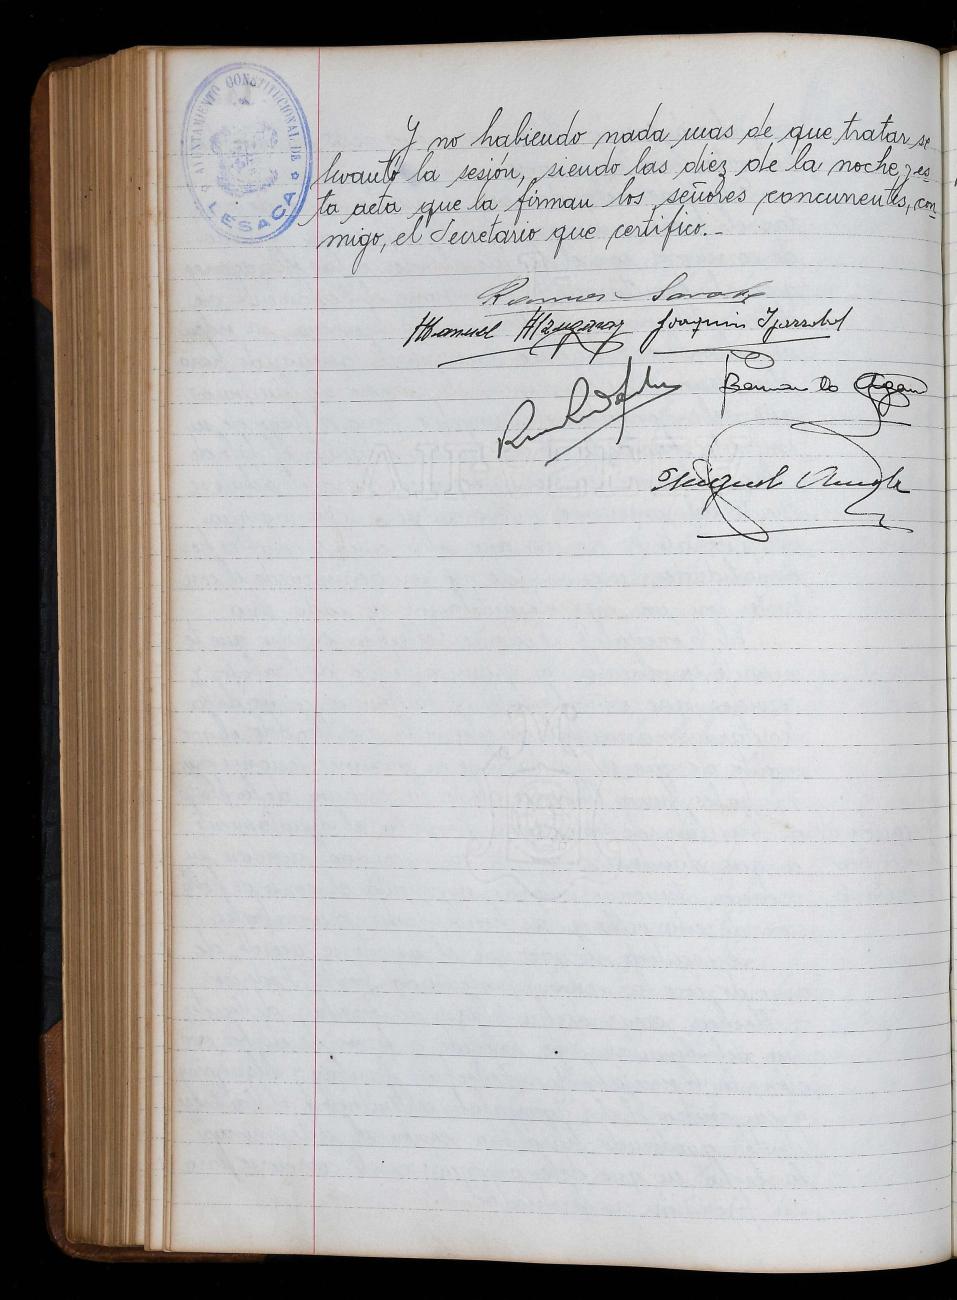 AYUNTAMIENTO CONSTITUCIONAL DE
LESACA
Y no habiendo nada mas de que tratar se
levantó la sesión, siendo las diez de la noche, y es-
ta acta que la firman los señores concurrentes, con-
migo, el Secretario que certifico.-
Manuel
Joaquin
Bernardo
Miguel